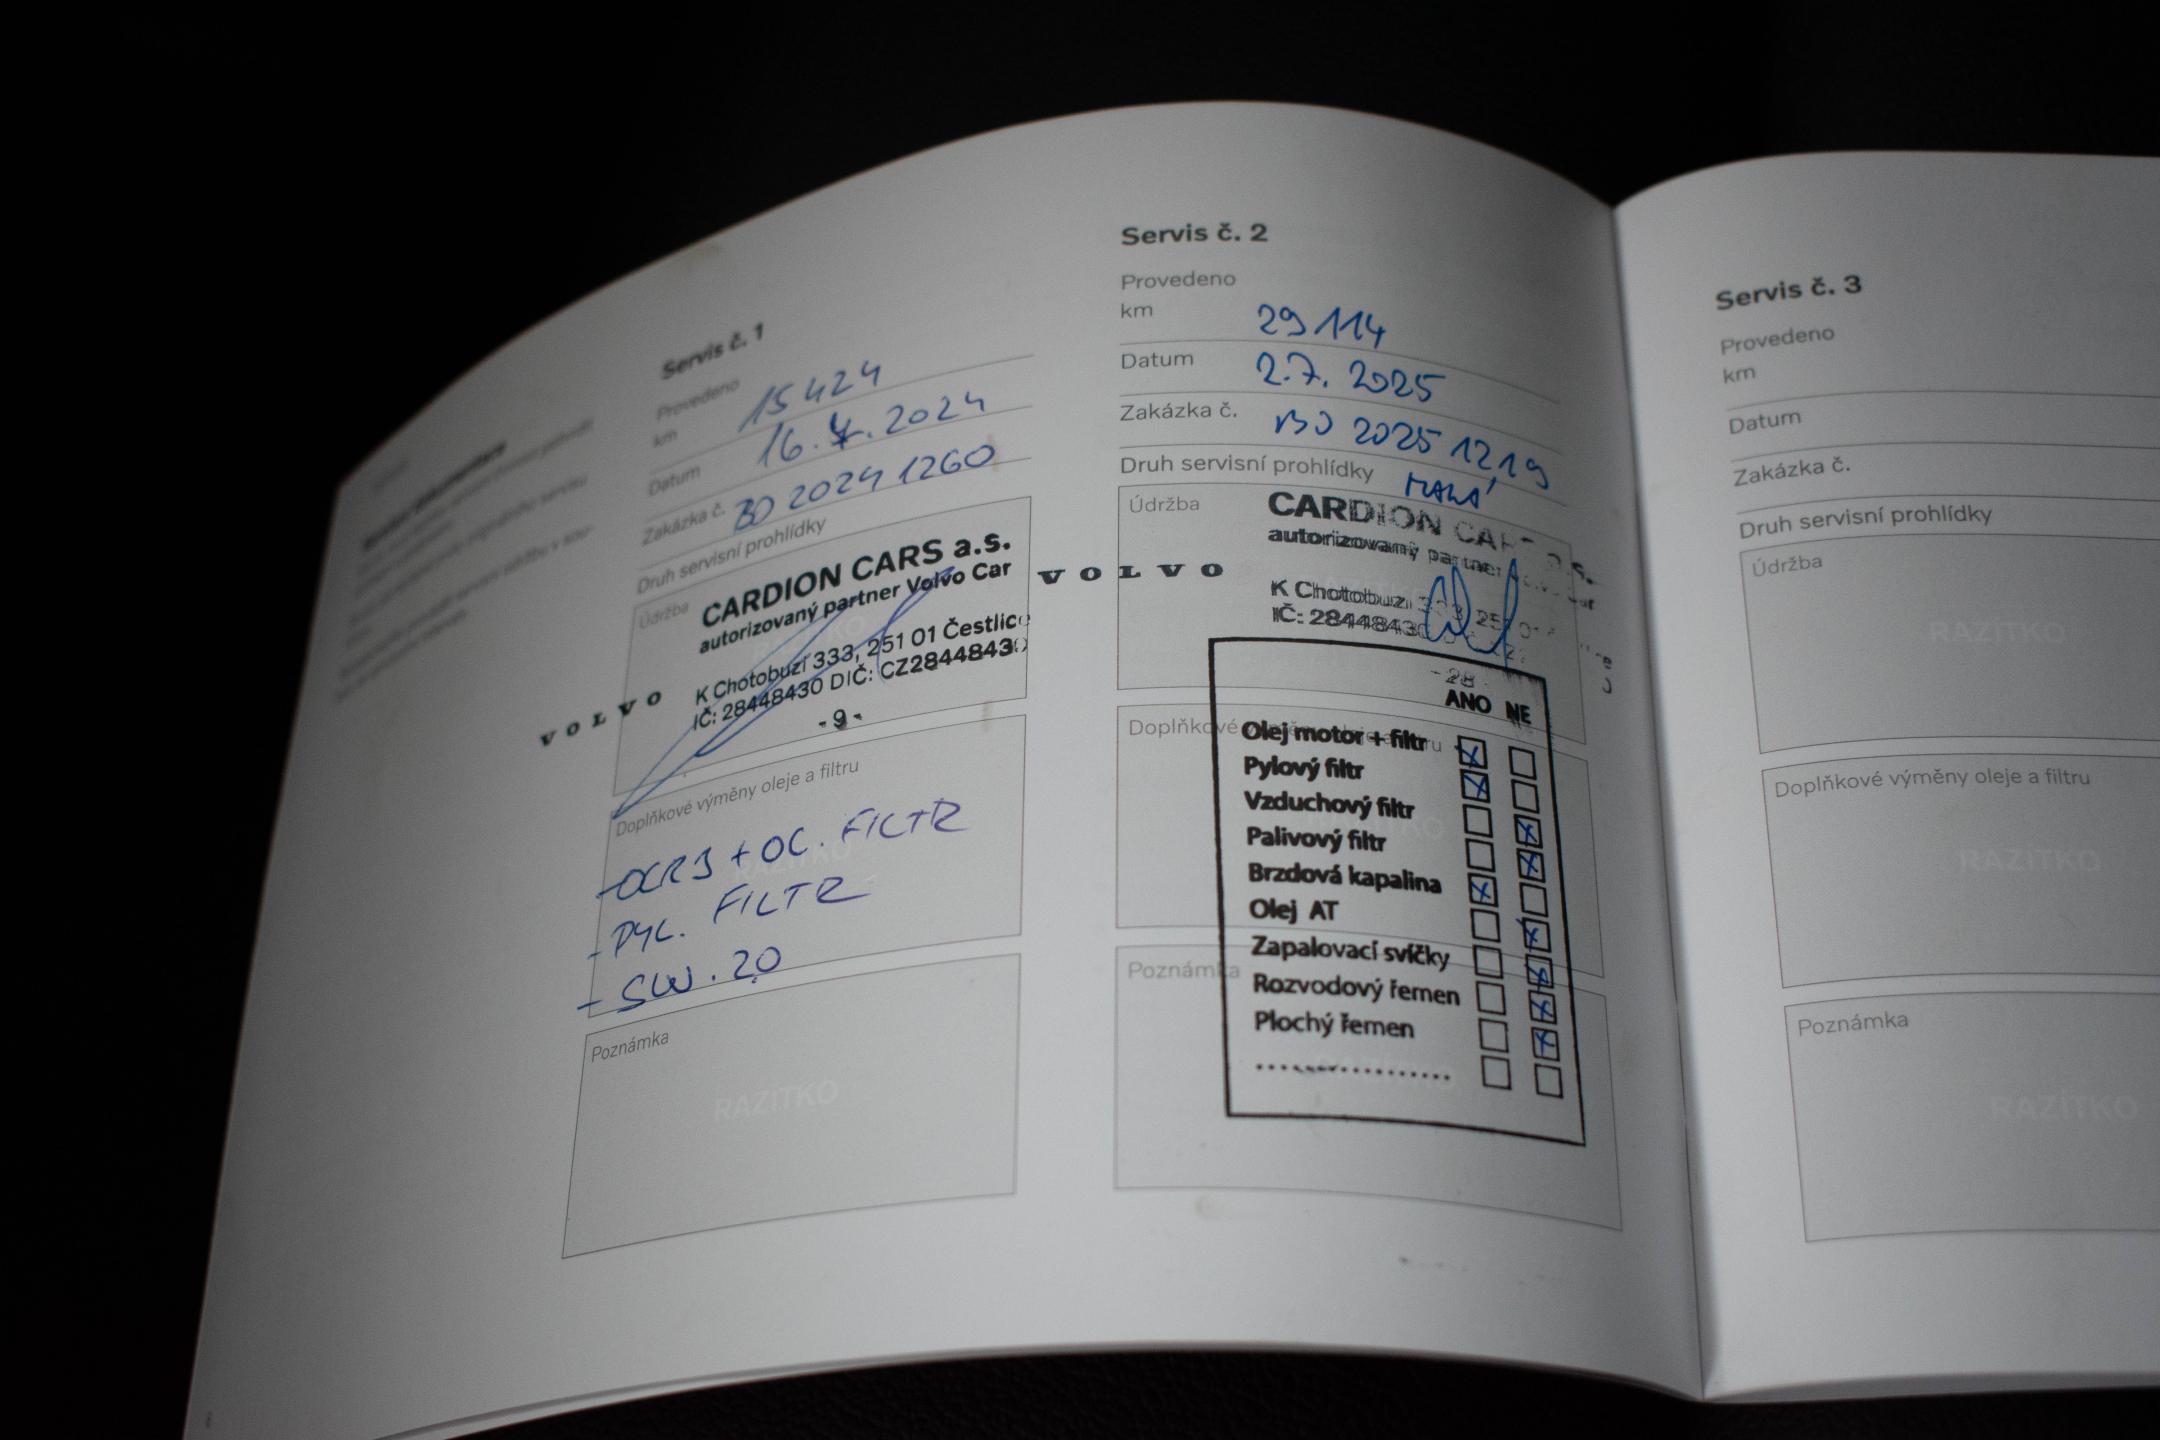 Servis č. 1
Provedeno
km 15 424
Datum 16.7.2024
Zakázka č. BO 2024 1260
Druh servisní prohlídky
Údržba
CARDION CARS a.s.
autorizovaný partner Volvo Car
VOLVO
K Chotobuzi 333, 251 01 Čestlice
IČ: 28448430 DIČ: CZ28448430
- 9 -
Doplňkové výměny oleje a filtru
RAZÍTKO
- PYL. FILTR
- SW. 20
Poznámka
RAZÍTKO
Servis č. 2
Provedeno
km 29 114
Datum 2.7. 2025
Zakázka č. BO 2025 1219
Druh servisní prohlídky MALÁ
Údržba
CARDION CARS a.s.
autorizovaný partner Volvo Car
VOLVO
K Chotobuzi 333, 251 01
IČ: 28448430
- 28 -
ANO NE
Doplňkové výměny oleje a filtru
Olej motor + filtr x
Pylový filtr x
Vzduchový filtr x
Palivový filtr x
Brzdová kapalina x
Olej AT x
Zapalovací svíčky x
Poznámka
Rozvodový řemen x
Plochý řemen x
.................
Servis č. 3
Provedeno
km
Datum
Zakázka č.
Druh servisní prohlídky
Údržba
RAZÍTKO
Doplňkové výměny oleje a filtru
RAZÍTKO
Poznámka
RAZÍTKO